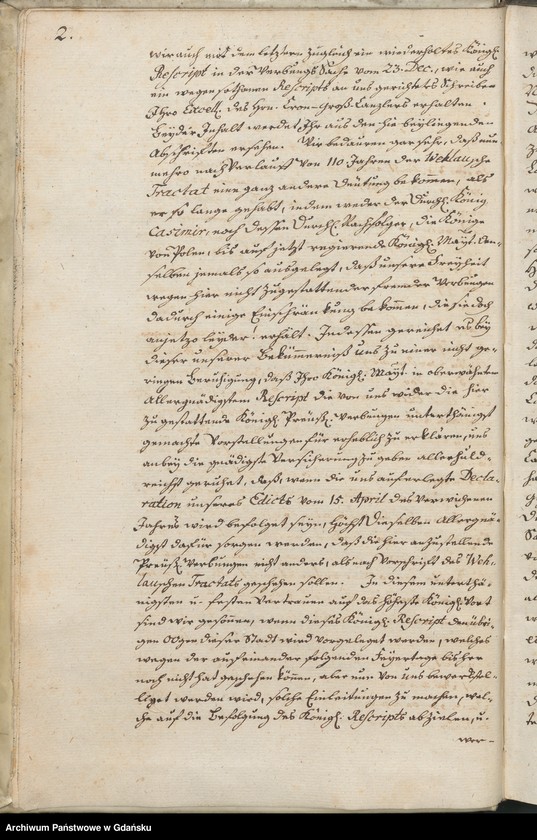 2.
wir auch mit dem letztern zugleich ein wiederholtes Königl.
Rescript in der Werbungs Sache vom 23. Dec., wie auch
ein wegen sothanen Rescripts an uns gerichtetes Schreiben
Ihro Excell. des Hrn. Cron-Groß-Canzlers erhalten.
Beyder Inhalt werdet Ihr aus den hie beyliegenden
Abschriften ersehen. Wir bedauren gar sehr, daß nun
mehro nach Verlauff von 110 Jahren der Wehlausche
Tractat eine ganz andere Deutung bekommen, als
er so lange gehabt, indem weder der Durchl. König
Casimir, noch dessen Durchl. Nachfolger, die Könige
von Polen, bis auf jetzt regierende Königl. Mayt. den-
selben jemals so ausgelegt, daß unsere Freyheit
wegen hier nicht zugestattender fremder Werbungen
dadurch einige Einschränkung bekommen, die sie doch
anjetzo leyder! erhält. Indessen gereichet es bey
dieser unserer Bekümmerniß uns zu einer nicht ge-
ringen Beruhigung, daß Ihro Königl. Mayt. in oberwähntem
Allergnädigstem Rescript die von uns wider die hier
zugestattende Königl. Preuß. Werbungen unterthänigst
gemachte Vorstellungen für erheblich zu erklären, uns
anbey die gnädigste Versicherung zu geben allerhuld-
reichst geruhet, daß, wenn die uns auferlegte Decla-
ration unseres Edicts vom 15. April des verwichenen
Jahres wird befolget seyn, Höchst Dieselben Allergnä-
digst dafür sorgen werden, daß die hier anzustellende
Preuß. Werbungen nicht anders, als nach Vorschrift des Weh-
lauschen Tractats geschehen sollen. In diesem unterthä-
nigsten u. festen Vertrauen auf das höchste Königl. Wort
sind wir gesonnen, wenn dieses Königl. Rescript den übri-
gen OOgen dieser Stadt wird vorgeleget werden, welches
wegen der aufeinander folgenden Feyertage bisher
noch nicht hat geschehen können, aber nun von uns bewerkstel-
liget werden wird, solche Einleitungen zu machen, wel-
che auf die Befolgung des Königl. Rescripts abzielen, u.
wer-
Archiwum Państwowe w Gdańsku